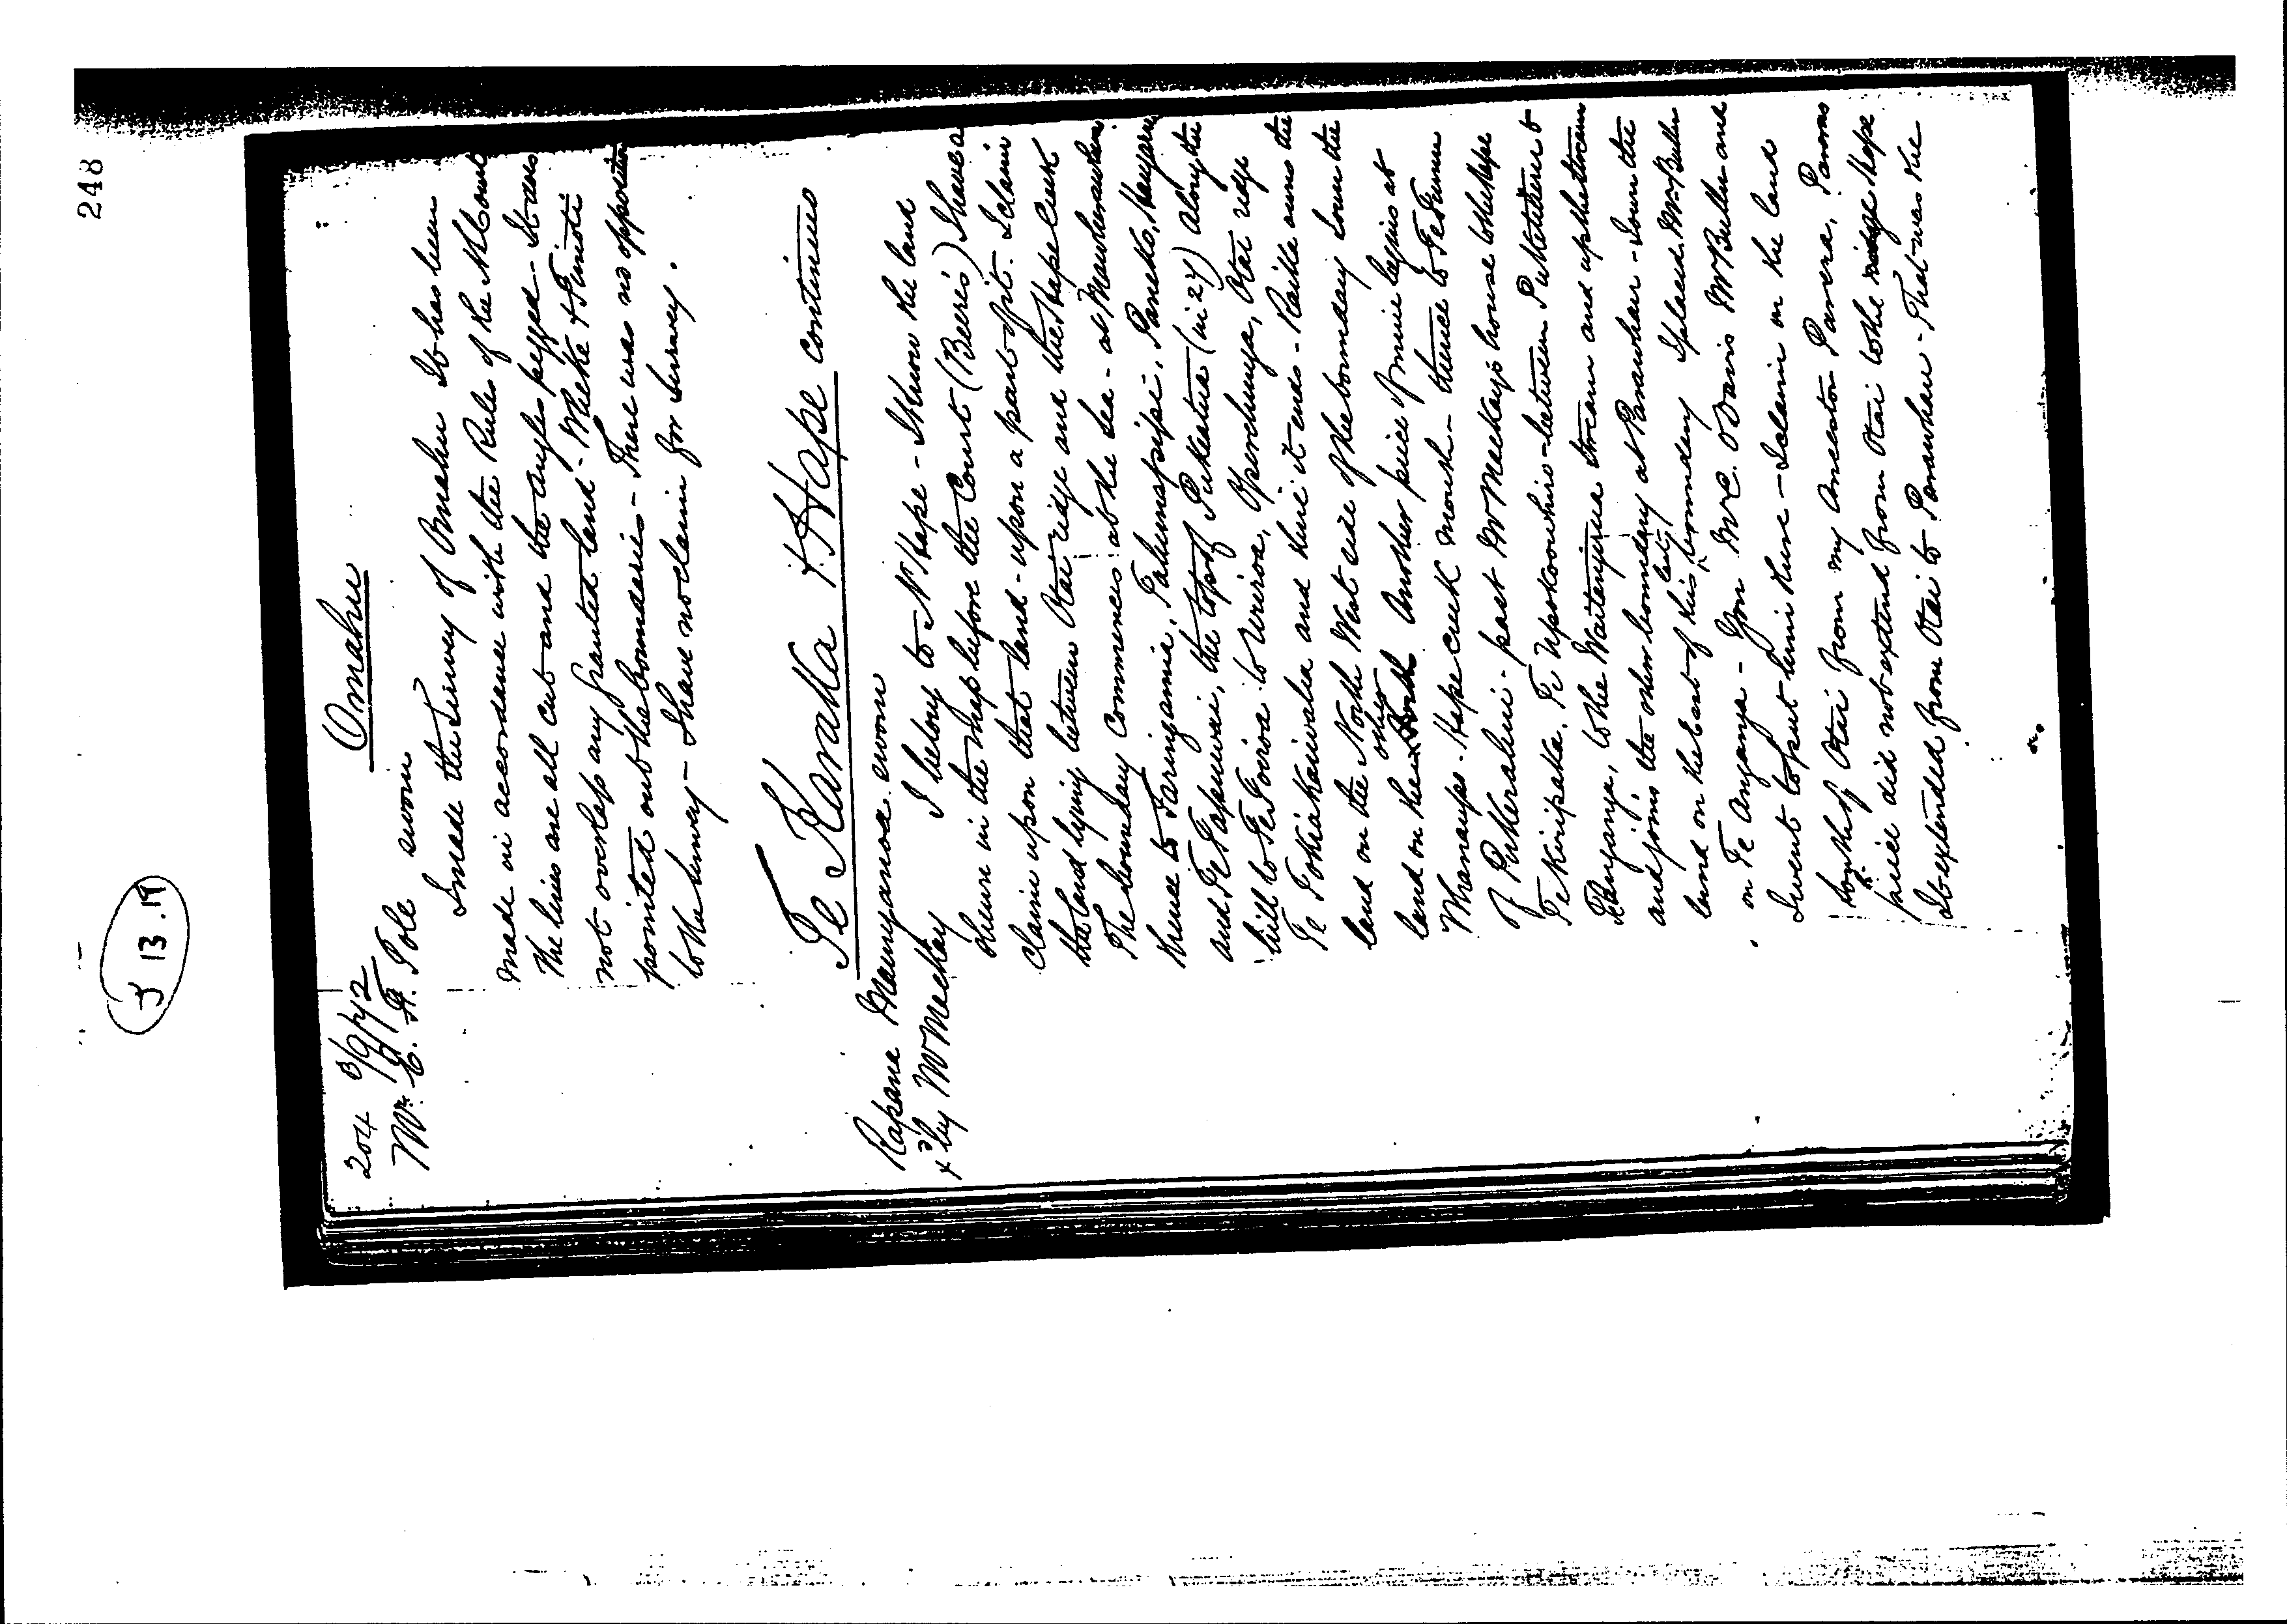 248
J 13.19
204 3/9/72
Omahu
Mr. C. H. Pole sworn
I made the survey of Omahu It has been
made in accordance with the Rules of the N L Court
The lines are all cut and the angles pegged - It does
not overlap any granted land - Wheke & Timoti
pointed out the boundaries - There was no opposition
to the survey - I have no claim for survey.
Te Karaka & Hape continues
Rapana Maungaroa sworn
x by Mr Mackay I belong to N Hape - I know the land
shewn in the map before the Court (Beere's) I have a
claim upon that land - upon a part of it. I claim
the land lying between Otai ridge and the Hape Creek
The boundary commences at the sea - at
thence to Taringamia,
and Te Tapuwai, the top of Pukeatua (in 27) along the
hill to Te Toiroa to Uriroa, Otai ridge
Te and here it ends - Raika owns the
land on the North West side of the boundary down the
land on the other Another piece of mine begins at
Whanaupo - Hape creek mouth - thence to Te Tumu
of Pukerahui - past Mr Mackay's house to the Hape
Te Kiripaka, Te Upokoowhiro - between Puketutere &
Rangiriri, to the stream and up the stream
and joins the other boundary at Parawhau - down the
land on the East of this boundary I placed Mr Buller
on Te Anganga - You Mr C. O. Davis Mr Buller and
I went to put him there - I claim on the land
South of Otai from my Ancestor Parera, Paroas
piece did not extend from Otai to the Hape
It extended from Otai to Parawhau - That was the